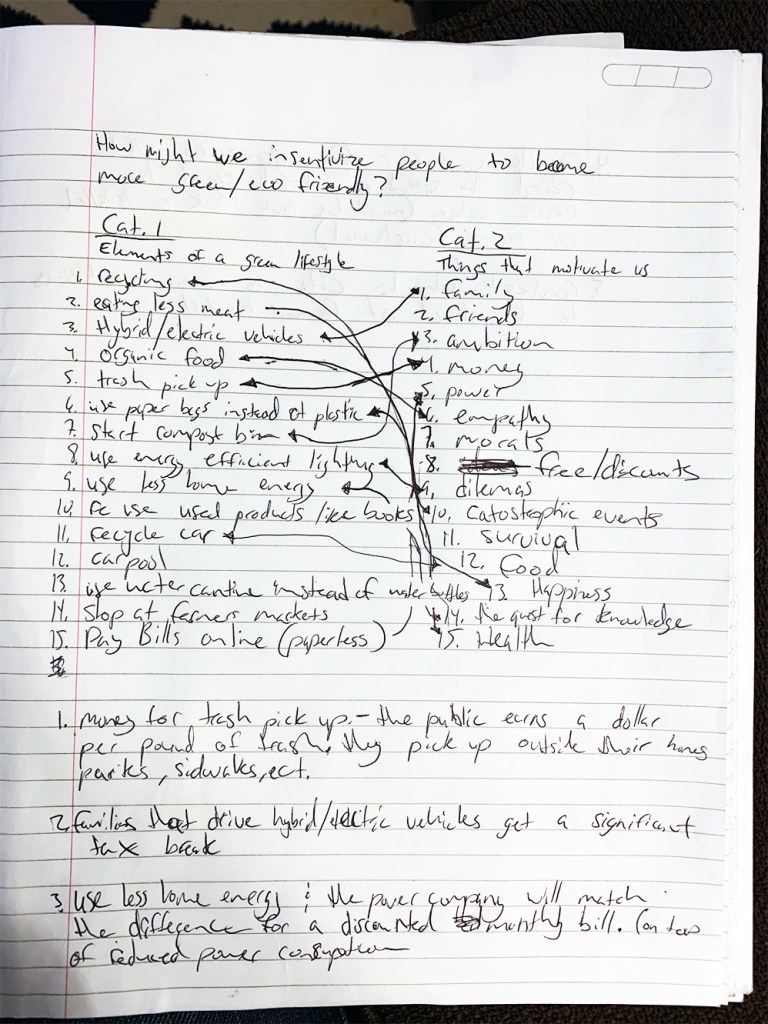 How might we insentivize people to become
more green/eco friendly?
Cat. 1
Elements of a green lifestyle
1. recycling
2. eating less meat
3. Hybrid/electric vehicles
4. organic food
5. trash pick up
6. use paper bags instead of plastic
7. start compost bin
8. use energy efficient lighting
9. use less home energy
10. use used products/like books
11. recycle car
12. carpool
13. use water cantine instead of water bottles
14. Stop at farmers markets
15. Pay Bills online (paperless)
Cat. 2
Things that motivate us
1. family
2. friends
3. ambition
4. money
5. power
6. empathy
7. morals
8. free/discounts
9. dilemas
10. catostrophic events
11. survival
12. food
13. Happiness
14. the quest for knowledge
15. Health
1. money for trash pick up. - the public earns a dollar
per pound of trash they pick up outside their homes
parks, sidwalks, ect.
2. families that drive hybrid/electric vehicles get a significant
tax break
3. use less home energy & the power company will match
the difference for a discounted monthly bill. (on top
of reduced power consumption